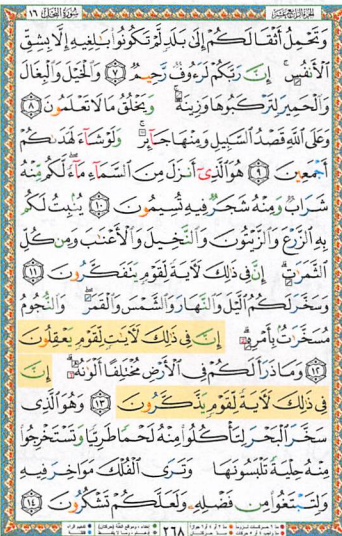 الجزء الرابع عشر
١٦ سورة النحل
وَتَحْمِلُ أَثْقَالَكُمْ إِلَىٰ بَلَدٍ لَّمْ تَكُونُوا۟ بَـٰلِغِيهِ إِلَّا بِشِقِّ
ٱلْأَنفُسِ ۚ إِنَّ رَبَّكُمْ لَرَءُوفٌ رَّحِيمٌ ٧ وَٱلْخَيْلَ وَٱلْبِغَالَ
وَٱلْحَمِيرَ لِتَرْكَبُوهَا وَزِينَةً ۚ وَيَخْلُقُ مَا لَا تَعْلَمُونَ ٨
وَعَلَى ٱللَّهِ قَصْدُ ٱلسَّبِيلِ وَمِنْهَا جَآئِرٌ ۚ وَلَوْ شَآءَ لَهَدَىٰكُمْ
أَجْمَعِينَ ٩ هُوَ ٱلَّذِىٓ أَنزَلَ مِنَ ٱلسَّمَآءِ مَآءً ۖ لَّكُم مِّنْهُ
شَرَابٌ وَمِنْهُ شَجَرٌ فِيهِ تُسِيمُونَ ١٠ يُنۢبِتُ لَكُم
بِهِ ٱلزَّرْعَ وَٱلزَّيْتُونَ وَٱلنَّخِيلَ وَٱلْأَعْنَـٰبَ وَمِن كُلِّ
ٱلثَّمَرَٰتِ ۗ إِنَّ فِى ذَٰلِكَ لَـَٔايَةً لِّقَوْمٍ يَتَفَكَّرُونَ ١١
وَسَخَّرَ لَكُمُ ٱلَّيْلَ وَٱلنَّهَارَ وَٱلشَّمْسَ وَٱلْقَمَرَ ۖ وَٱلنُّجُومُ
مُسَخَّرَٰتٌۢ بِأَمْرِهِۦٓ ۗ إِنَّ فِى ذَٰلِكَ لَـَٔايَـٰتٍ لِّقَوْمٍ يَعْقِلُونَ
١٢ وَمَا ذَرَأَ لَكُمْ فِى ٱلْأَرْضِ مُخْتَلِفًا أَلْوَٰنُهُۥٓ ۗ إِنَّ
فِى ذَٰلِكَ لَـَٔايَةً لِّقَوْمٍ يَذَّكَّرُونَ ١٣ وَهُوَ ٱلَّذِى
سَخَّرَ ٱلْبَحْرَ لِتَأْكُلُوا۟ مِنْهُ لَحْمًا طَرِيًّا وَتَسْتَخْرِجُوا۟
مِنْهُ حِلْيَةً تَلْبَسُونَهَا وَتَرَى ٱلْفُلْكَ مَوَاخِرَ فِيهِ
وَلِتَبْتَغُوا۟ مِن فَضْلِهِۦ وَلَعَلَّكُمْ تَشْكُرُونَ ١٤
٢٦٨